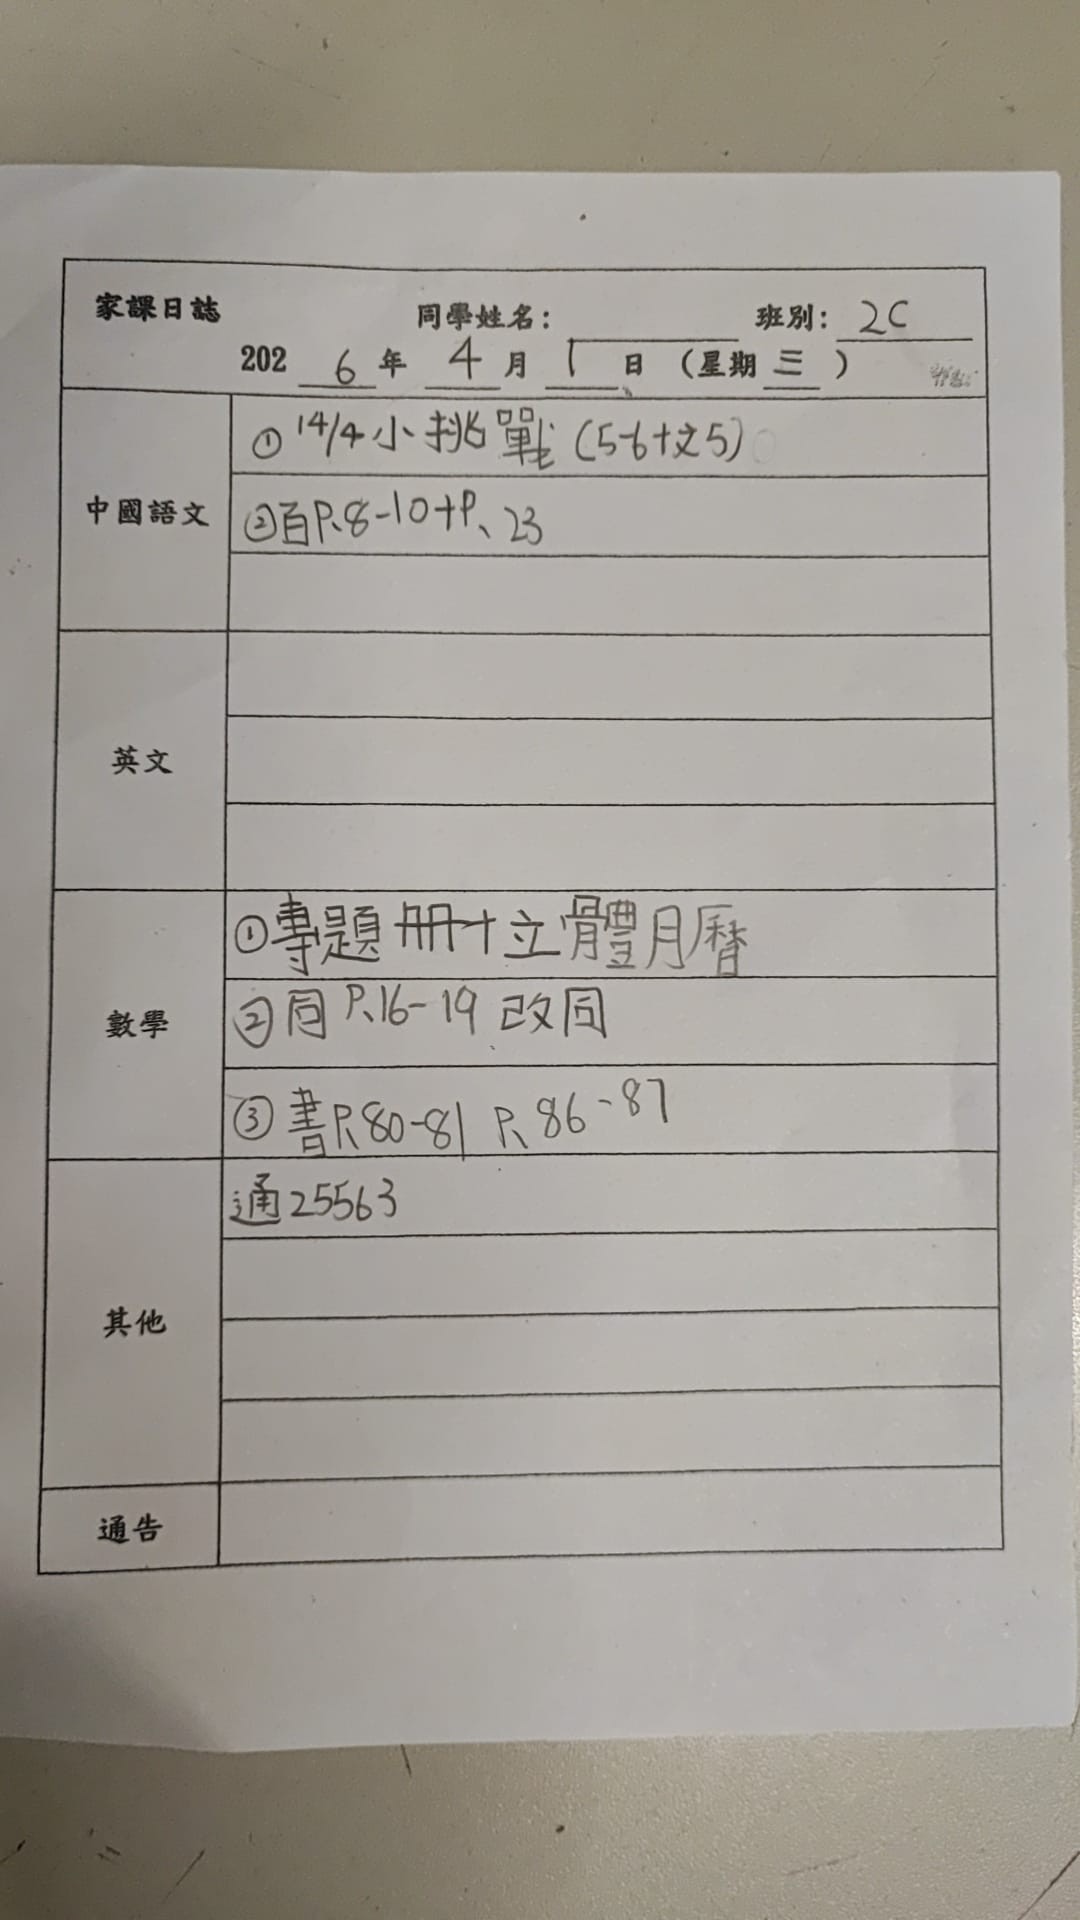 家課日誌 同學姓名： 班別：2C
2026年4月1日（星期三）
中國語文
①14/4小挑戰(5-6+文5)
②百P.8-10+P.23
英文
數學
①專題冊+立體月曆
②同P.16-19改同
③書P.80-81 P.86-87
其他
通25563
通告